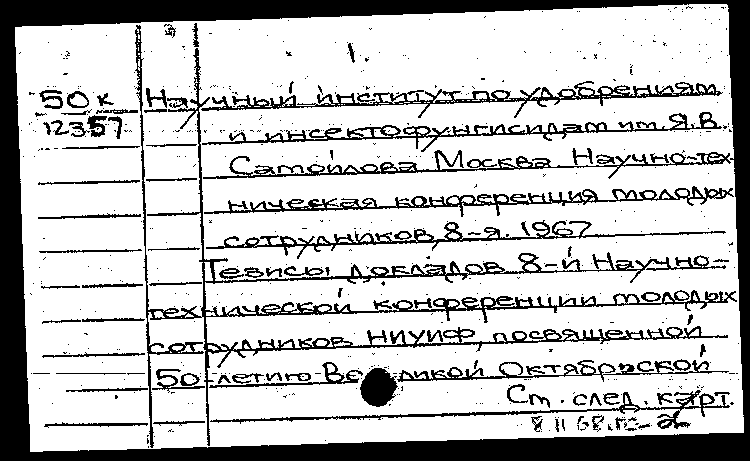 1.
50к Научный институт по удобрениям
12357 и инсектофунгисидам им. Я.В.
Самойлова Москва Научно-тех-
ническая конференция молодых
сотрудников, 8-я. 1967
Тезисы докладов 8-й Научно-
технической конференции молодых
сотрудников НИУИФ, посвященной
50-летию Великой Октябрьской
См. след. карт.
8 II 68.